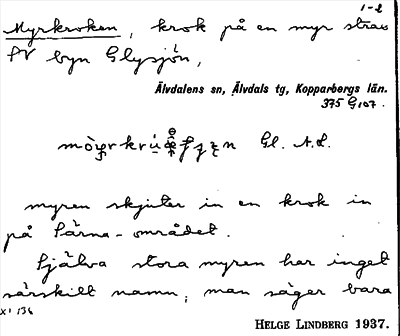 1-2
Myrkroken, krok på en myr strax
SV byn Glysjön,
Älvdalens sn, Älvdals tg, Kopparbergs län.
375 G107.
Gl. A.L.
myren skjuter in en krok in
på Särna-området.
Själva stora myren har inget
särskilt namn; man säger bara
XI 136
HELGE LINDBERG 1937.